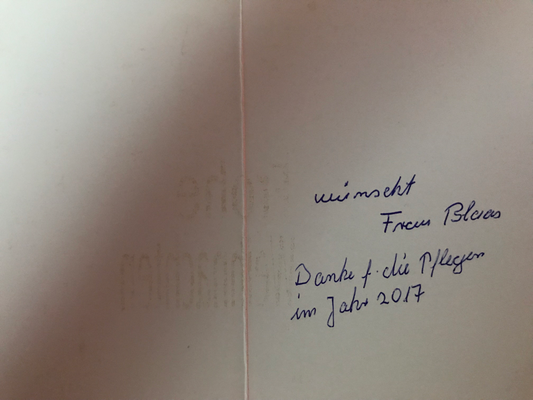 Frohe
Weihnachten
wünscht
Frau Blaas
Danke f. die Pflegen
im Jahr 2017